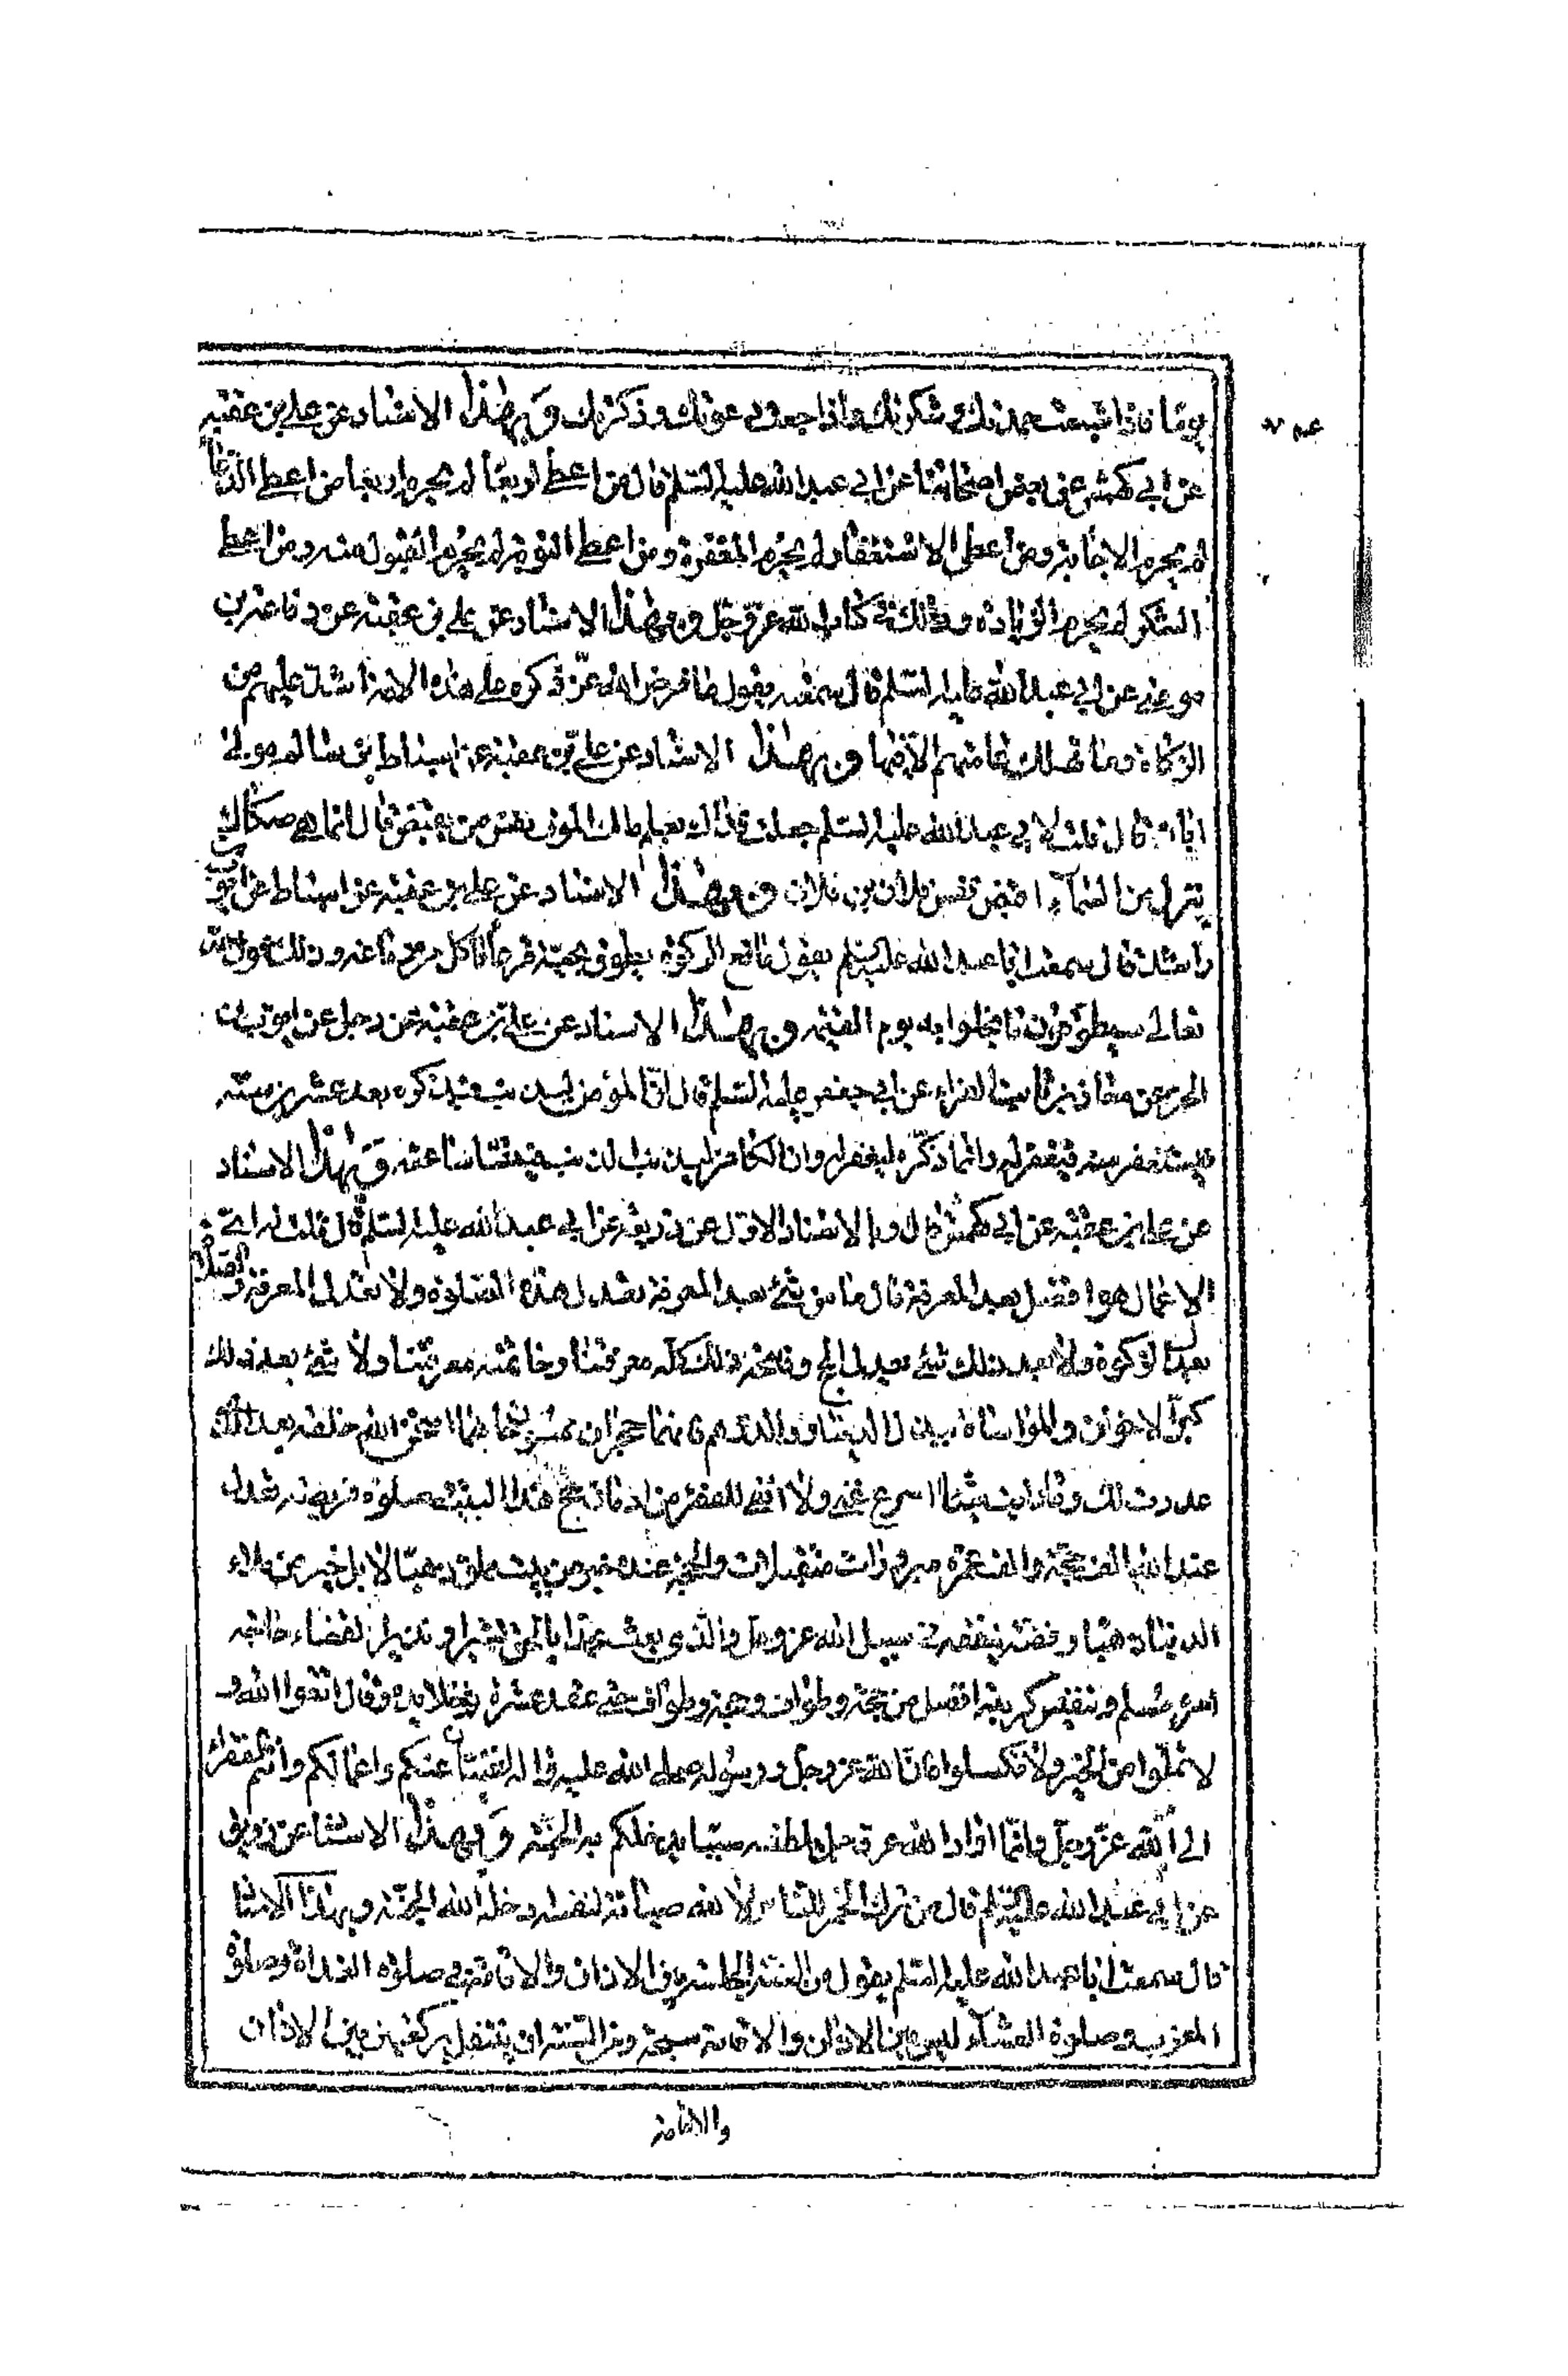 يوما فاذا شبعت حمدتك وشكرتك واذا جعت دعوتك وذكرتك وبهذا الاسناد عن علي بن عقبة
عن ابي كهمش عن بعض اصحابنا عن ابي عبد الله عليه السلم قال من اعطى اربعا لم يحرم اربعا من اعطى الدعا
لم يحرم الاجابة ومن اعطى الاستغفار لم يحرم المغفرة ومن اعطى التوبة لم يحرم القبول منه ومن اعطى
الشكر لم يحرم الزيادة وذلك في كتاب الله عز وجل وبهذا الاسناد عن علي بن عقبة عن رفاعة بن
موسى عن ابي عبد الله عليه السلم قال سمعته يقول ما فرض الله عز ذكره على هذه الامة اشد عليهم من
الزكاة وما تهلك عامتهم الا فيها وبهذا الاسناد عن علي بن عقبة عن اسباط بن سالم مولى
ابان قال قلت لابي عبد الله عليه السلم جعلت فداك يعلم ملك الموت نفس من يقبض قال انما هي صكاك
ينزل من السماء اقبض نفس فلان بن فلان وبهذا الاسناد عن علي بن عقبة عن اسباط عن ايوب
راشد قال سمعت ابا عبد الله عليه السلم يقول مانع الزكوة يطوق بحية قرعا تاكل من دماغه وذلك قول الله
تعالى سيطوقون ما بخلوا به يوم القيمة وبهذا الاسناد عن علي بن عقبة عن رجل عن ايوب بن
الحر عن معاذ بن ثابت الفراء عن ابي جعفر عليه السلم قال ان المؤمن ليذنب فيذكره بعد عشرين سنة
فيستغفر منه فيغفر له وانما ذكره ليغفر له وان الكافر ليذنب الذنب فينساه من ساعته وبهذا الاسناد
عن علي بن عقبة عن ابي كهمش قال وبالاسناد الاول عن زريق عن ابي عبد الله عليه السلم قال قلت له اي
الاعمال هو افضل بعد المعرفة قال ما من شئ بعد المعرفة يعدل هذه الصلوة ولا بعد المعرفة والصلاة
يعدل الزكوة ولا بعد ذلك شئ يعدل الحج وفاتحة ذلك كله معرفتنا وخاتمته معرفتنا ولا شئ بعد ذلك
كبر الاخوان والمواساة ببذل الدينار والدرهم فانهما حجران ممسوخان بهما امتحن الله خلقه بعد الذي
عددت لك وما رايت شيئا اسرع غنى ولا انفى للفقر من ادمان حج هذا البيت وصلوة فريضة تعدل
عند الله الف حجة والف عمرة مبرورات متقبلات والحجة عنده خير من بيت مملو ذهبا لا بل خير من ملاء
الدنيا ذهبا وفضة ينفقه في سبيل الله عز وجل والذي بعث محمدا بالحق بشيرا ونذيرا لقضاء حاجة
امرء مسلم وتنفيس كربته افضل من حجة وطواف وحجة وطواف حتى عقد عشرة ثم خلا يده وقال اتقوا الله و
لا تملوا من الخير ولا تكسلوا فان الله عز وجل ورسوله صلى الله عليه واله لغنيان عنكم واعمالكم وانتم الفقراء
الى الله عز وجل وانما اراد الله عز وجل بلطفه سببا يدخلكم به الجنة وبهذا الاسناد عن زريق
عن ابي عبد الله عليه السلم قال من ترك الخمر للناس لا لله صيانة لنفسه ادخله الله الجنة وبهذا الاسناد
قال سمعت ابا عبد الله عليه السلم يقول من السنة الجلسة بين الاذان والاقامة في صلوة الغداة وصلوة
المغرب وصلوة العشاء ليس بين الاذان والاقامة سبحة ومن السنة ان يتنفل بركعتين بين الاذان
والاقامة